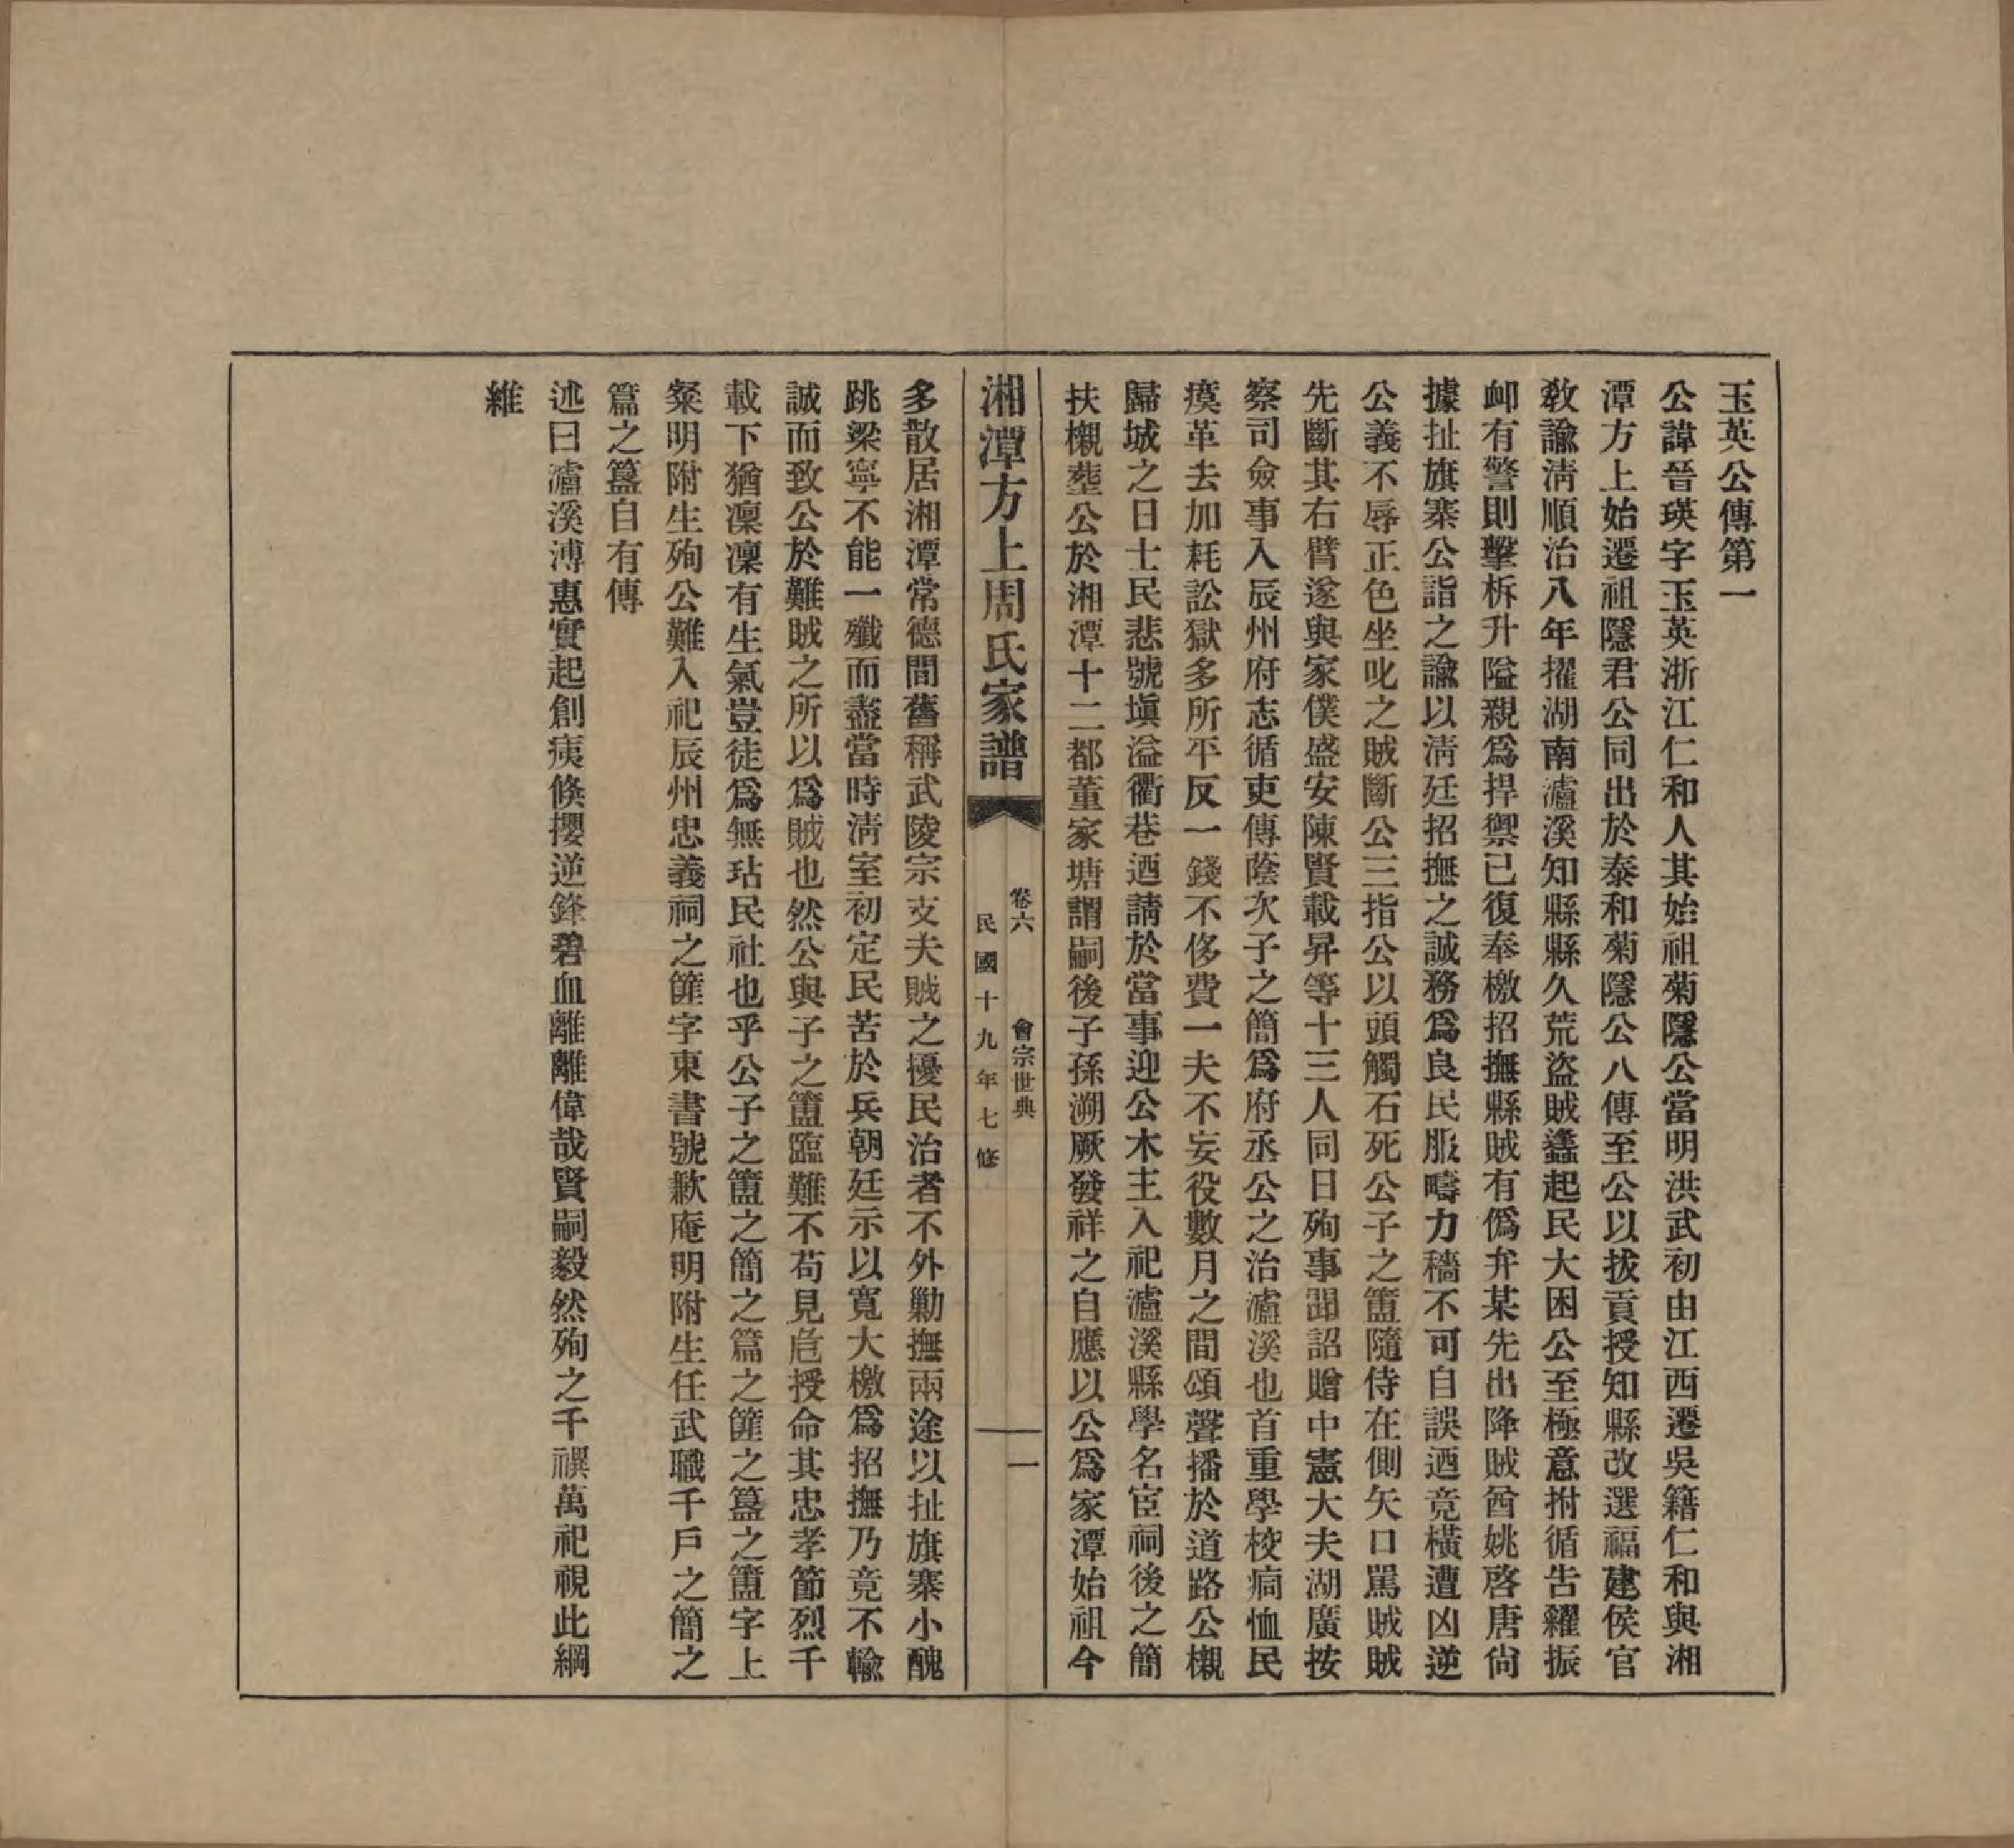 玉英公傳第一
公諱晉瑛字玉英浙江仁和人其始祖菊隱公當明洪武初由江西遷吳籍仁和與湘
潭方上始遷祖隱君公同出於泰和菊隱公八傳至公以拔貢授知縣改選福建侯官
敎諭淸順治八年擢湖南瀘溪知縣縣久荒盜賊蠭起民大困公至極意拊循告糴振
卹有警則擊柝升隘親爲捍禦已復奉檄招撫縣賊有僞弁某先出降賊酋姚啓唐尙
據扯旗寨公詣之諭以淸廷招撫之誠務爲良民服疇力穡不可自誤迺竟橫遭凶逆
公義不辱正色坐叱之賊斷公三指公以頭觸石死公子之簠隨侍在側矢口駡賊賊
先斷其右臂遂與家僕盛安陳賢載昇等十三人同日殉事聞詔贈中憲大夫湖廣按
察司僉事入辰州府志循吏傳蔭次子之簡爲府丞公之治瀘溪也首重學校痌恤民
瘼革去加耗訟獄多所平反一錢不侈費一夫不妄役數月之間頌聲播於道路公櫬
歸城之日士民悲號塡溢衢巷迺請於當事迎公木主入祀瀘溪縣學名宦祠後之簡
扶櫬塟公於湘潭十二都董家塘謂嗣後子孫溯厥發祥之自應以公爲家潭始祖今
湘潭方上周氏家譜
卷六　會宗世典　一
民國十九年七修
多散居湘潭常德間舊稱武陵宗支夫賊之擾民治者不外勦撫兩途以扯旗寨小醜
跳梁寧不能一殲而盡當時淸室初定民苦於兵朝廷示以寬大檄爲招撫乃竟不輸
誠而致公於難賊之所以爲賊也然公與子之簠臨難不苟見危授命其忠孝節烈千
載下猶凜凜有生氣豈徒爲無玷民社也乎公子之簠之簡之篇之䉡之簋之簠字上
粲明附生殉公難入祀辰州忠義祠之䉡字東書號歉庵明附生任武職千戶之簡之
篇之簋自有傳
述曰瀘溪溥惠實起創痍倐攖逆鋒碧血離離偉哉賢嗣毅然殉之千禩萬祀視此綱
維